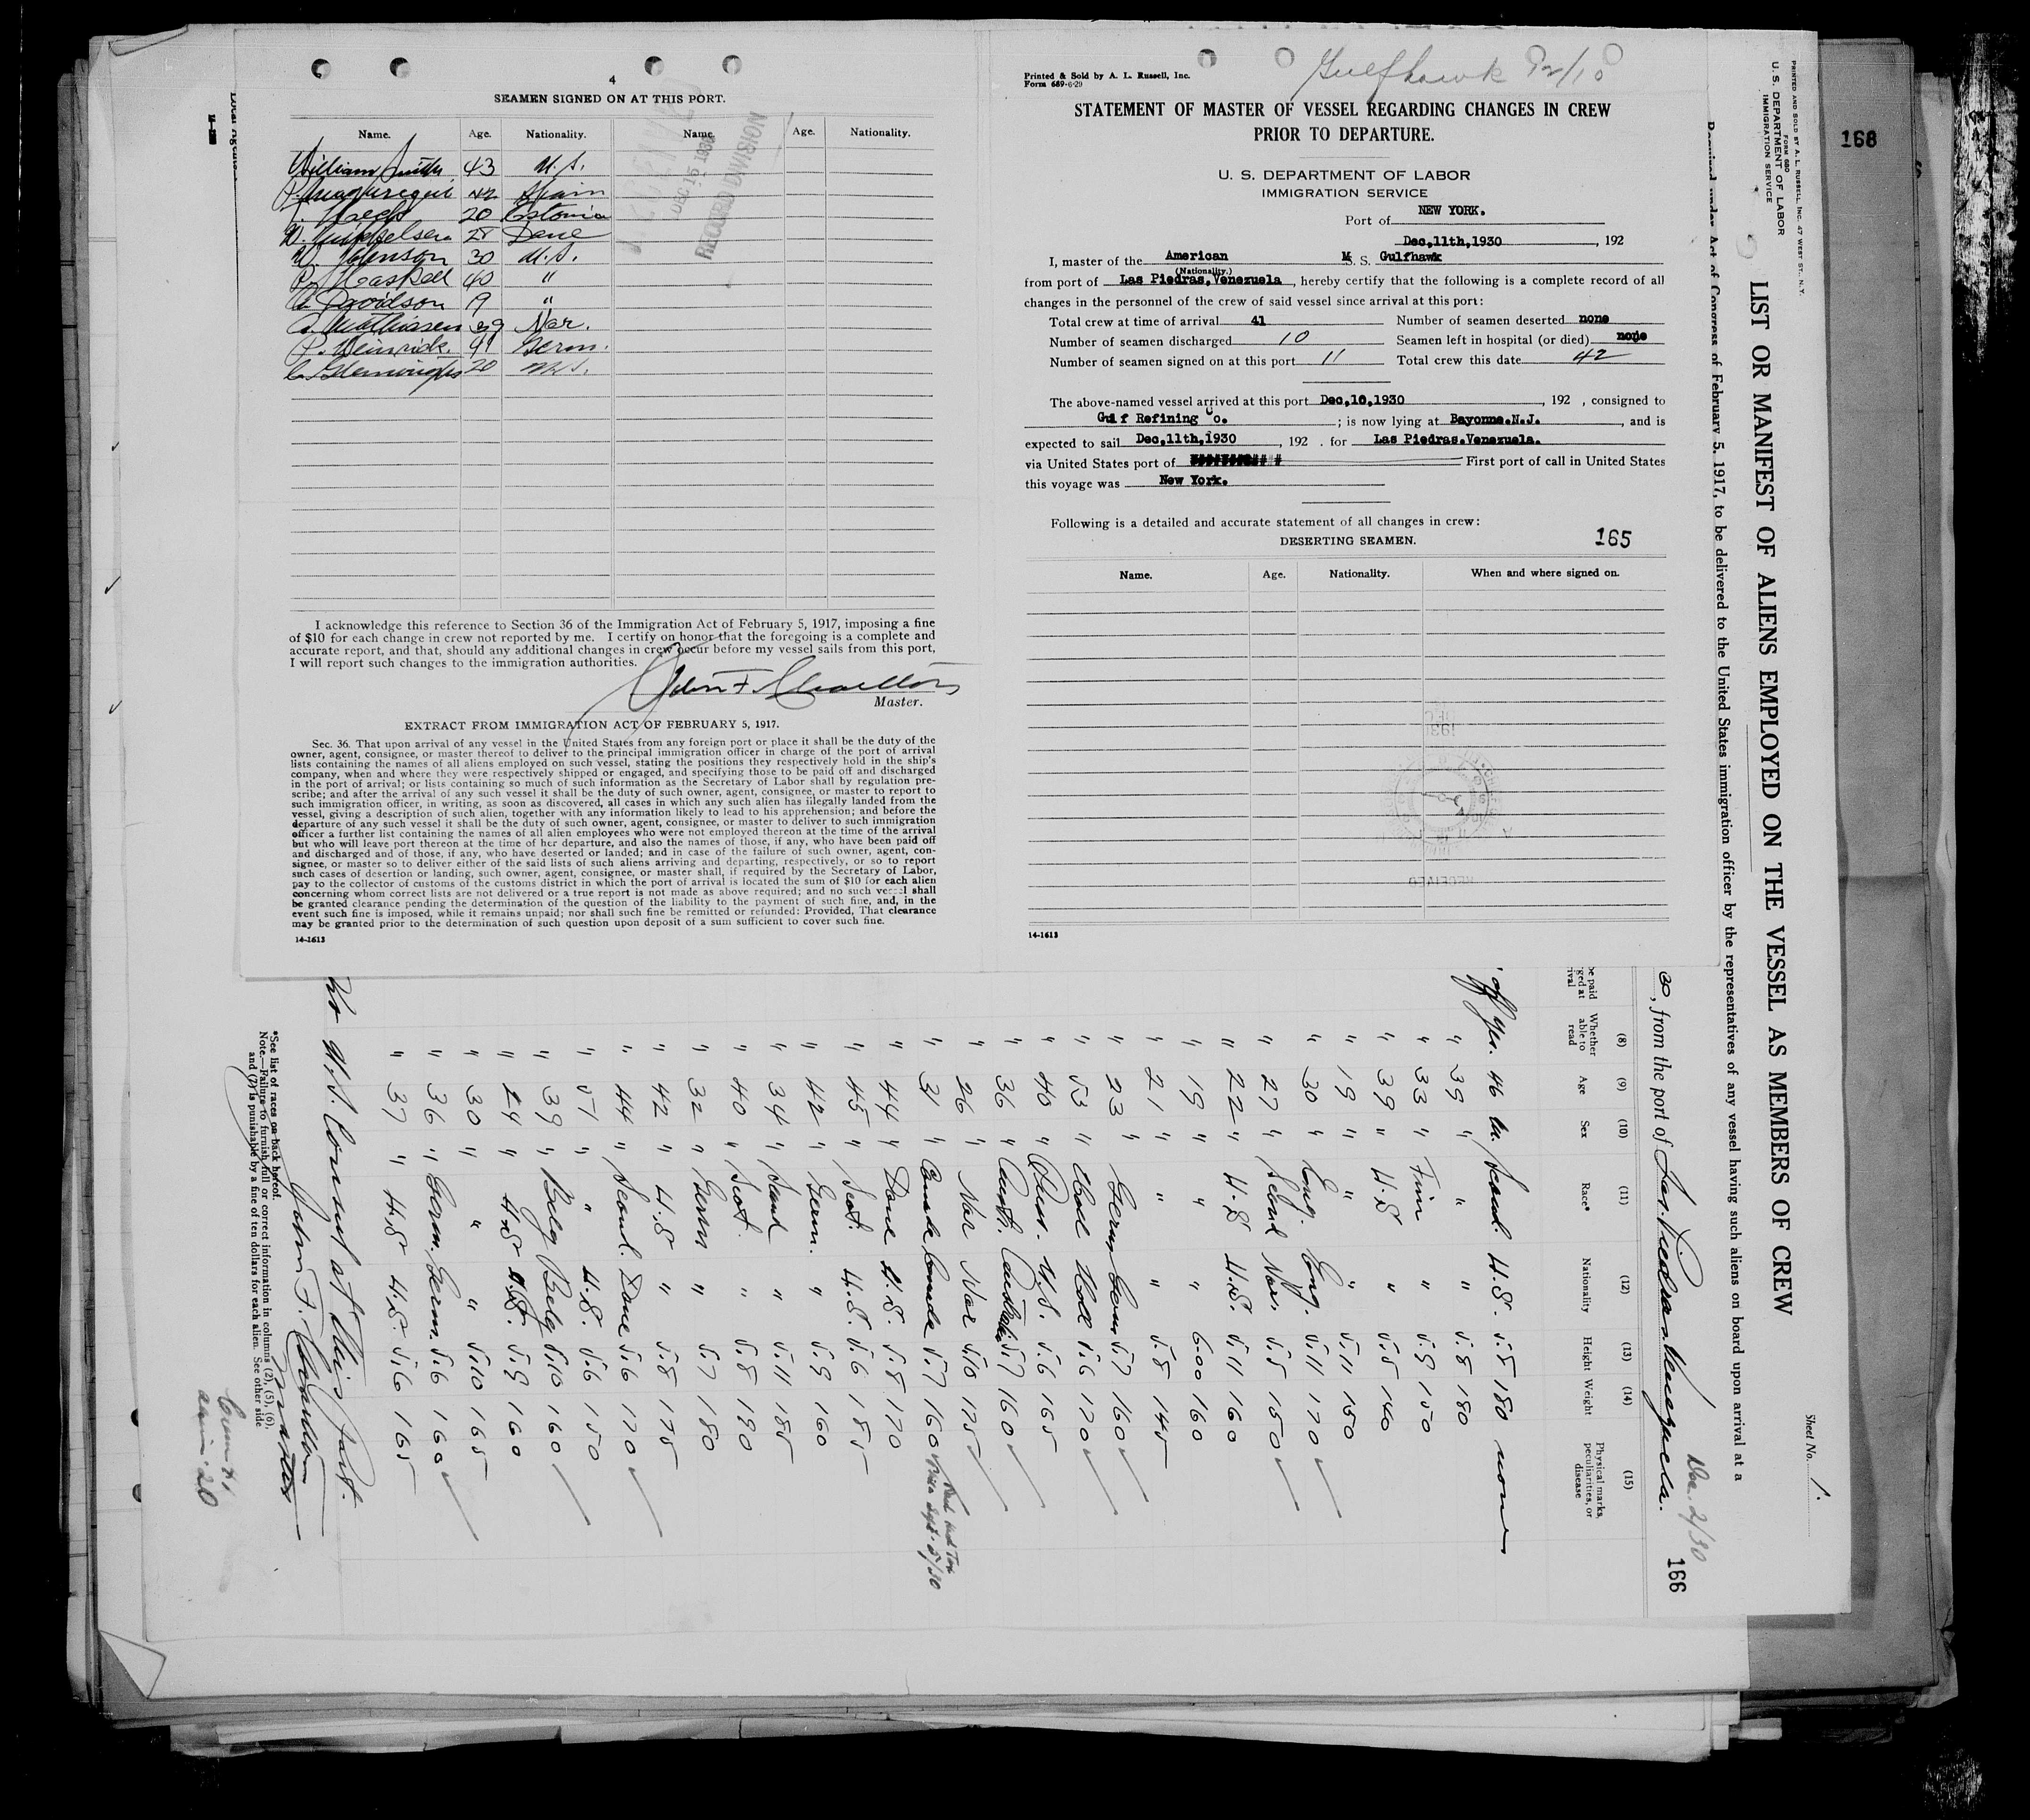 4
SEAMEN SIGNED ON AT THIS PORT.
Name. Age. Nationality. Name. Age. Nationality.
William Smith 43 U.S.
42 Spain
20 Estonia
Dane
30 U.S.
P. Haskell 40 "
Davidson 19 "
Mathiasen 39 Nor.
41 Germ.
20 U.S.
DEC 15 1930
RECORD DIVISION
I acknowledge this reference to Section 36 of the Immigration Act of February 5, 1917, imposing a fine
of $10 for each change in crew not reported by me. I certify on honor that the foregoing is a complete and
accurate report, and that, should any additional changes in crew occur before my vessel sails from this port,
I will report such changes to the immigration authorities.
John F. Charlton
Master.
EXTRACT FROM IMMIGRATION ACT OF FEBRUARY 5, 1917.
Sec. 36. That upon arrival of any vessel in the United States from any foreign port or place it shall be the duty of the
owner, agent, consignee, or master thereof to deliver to the principal immigration officer in charge of the port of arrival
lists containing the names of all aliens employed on such vessel, stating the positions they respectively hold in the ship's
company, when and where they were respectively shipped or engaged, and specifying those to be paid off and discharged
in the port of arrival; or lists containing so much of such information as the Secretary of Labor shall by regulation pre-
scribe; and after the arrival of any such vessel it shall be the duty of such owner, agent, consignee, or master to report to
such immigration officer, in writing, as soon as discovered, all cases in which any such alien has illegally landed from the
vessel, giving a description of such alien, together with any information likely to lead to his apprehension; and before the
departure of any such vessel it shall be the duty of such owner, agent, consignee, or master to deliver to such immigration
officer a further list containing the names of all alien employees who were not employed thereon at the time of the arrival
but who will leave port thereon at the time of her departure, and also the names of those, if any, who have been paid off
and discharged and of those, if any, who have deserted or landed; and in case of the failure of such owner, agent, con-
signee, or master so to deliver either of the said lists of such aliens arriving and departing, respectively, or so to report
such cases of desertion or landing, such owner, agent, consignee, or master shall, if required by the Secretary of Labor,
pay to the collector of customs of the customs district in which the port of arrival is located the sum of $10 for each alien
concerning whom correct lists are not delivered or a true report is not made as above required; and no such vessel shall
be granted clearance pending the determination of the question of the liability to the payment of such fine, and, in the
event such fine is imposed, while it remains unpaid; nor shall such fine be remitted or refunded: Provided, That clearance
may be granted prior to the determination of such question upon deposit of a sum sufficient to cover such fine.
14-1613
Gulfhawk 12/10
Printed & Sold by A. L. Russell, Inc.
Form 689-6-29
STATEMENT OF MASTER OF VESSEL REGARDING CHANGES IN CREW
PRIOR TO DEPARTURE.
U. S. DEPARTMENT OF LABOR
IMMIGRATION SERVICE
Port of NEW YORK.
Dec,11th,1930, 192
I, master of the American M. S. Gulfhawk
(Nationality.)
from port of Las Piedras, Venezuela, hereby certify that the following is a complete record of all
changes in the personnel of the crew of said vessel since arrival at this port:
Total crew at time of arrival 41 Number of seamen deserted none
Number of seamen discharged 10 Seamen left in hospital (or died) none
Number of seamen signed on at this port 11 Total crew this date 42
The above-named vessel arrived at this port Dec,10,1930, 192 , consigned to
Gulf Refining Co. ; is now lying at Bayonne.N.J., and is
expected to sail Dec,11th,1930, 192 . for Las Piedras.Venezuela.
via United States port of First port of call in United States
this voyage was New York.
Following is a detailed and accurate statement of all changes in crew:
DESERTING SEAMEN. 165
Name. Age. Nationality. When and where signed on.
RECEIVED
14-1613
168
PRINTED AND SOLD BY A. L. RUSSELL, INC. 47 WEST ST., N. Y.
FORM 680
U. S. DEPARTMENT OF LABOR
IMMIGRATION SERVICE
Sheet No. 1.
LIST OR MANIFEST OF ALIENS EMPLOYED ON THE VESSEL AS MEMBERS OF CREW
Required under Act of Congress of February 5, 1917, to be delivered to the United States immigration officer by the representatives of any vessel having such aliens on board upon arrival at a
30, from the port of Las Piedras Venezuela. Dec. 2/30
166
(8) (9) (10) (11) (12) (13) (14) (15)
Whether able to read Age Sex Race* Nationality Height Weight Physical marks, peculiarities, or disease
off yes. 46 m. Scand. U.S. 5.8 180 none
" 39 " " " 5.8 180
" 33 " Finn " 5.9 150
" 39 " U.S " 5.5 140
" 19 " " " 5.11 150
" 30 " Eng. Eng. 5.11 170
" 27 " Scand Nor. 5.5 150
" 22 " U.S U.S. 5.11 160
" 19 " " " 6.00 160
" 21 " " " 5.8 145
" 23 " Germ Germ 5.7 160
" 53 " Holl Holl 5.6 170
" 40 " U.S. 5.6 165
" 36 " 5.7 160
" 26 " Nor Nor 5.10 175
" 31 " Canada Canada 5.7 160
" 44 " Dane U.S. 5.8 170
" 45 " Scot. U.S. 5.6 185
" 42 " Germ. " 5.9 160
" 34 " Scand " 5.11 185
" 40 " Scot. " 5.8 190
" 32 " Germ " 5.7 180
" 42 " U.S " 5.8 175
" 44 " Scand. Dane 5.6 170
" 51 " " U.S. 5.6 150
" 39 " Belg Belg 5.10 160
" 24 " U.S U.S. 5.9 160
" 30 " " " 5.10 165
" 36 " Germ. Germ. 5.6 160
" 37 " U.S U.S 5.6 165
No U.S. Consul at this Port.
John F. Charlton
Master
*See list of races on back hereof.
Note.—Failure to furnish full or correct information in columns (2), (5), (6),
and (7) is punishable by a fine of ten dollars for each alien. See other side